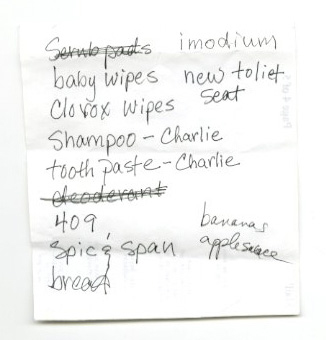 Scrub pads imodium
baby wipes new toliet
seat
Clorox wipes
Shampoo - Charlie
tooth paste - Charlie
deoderant
409
bananas
Spic & Span applesauce
bread